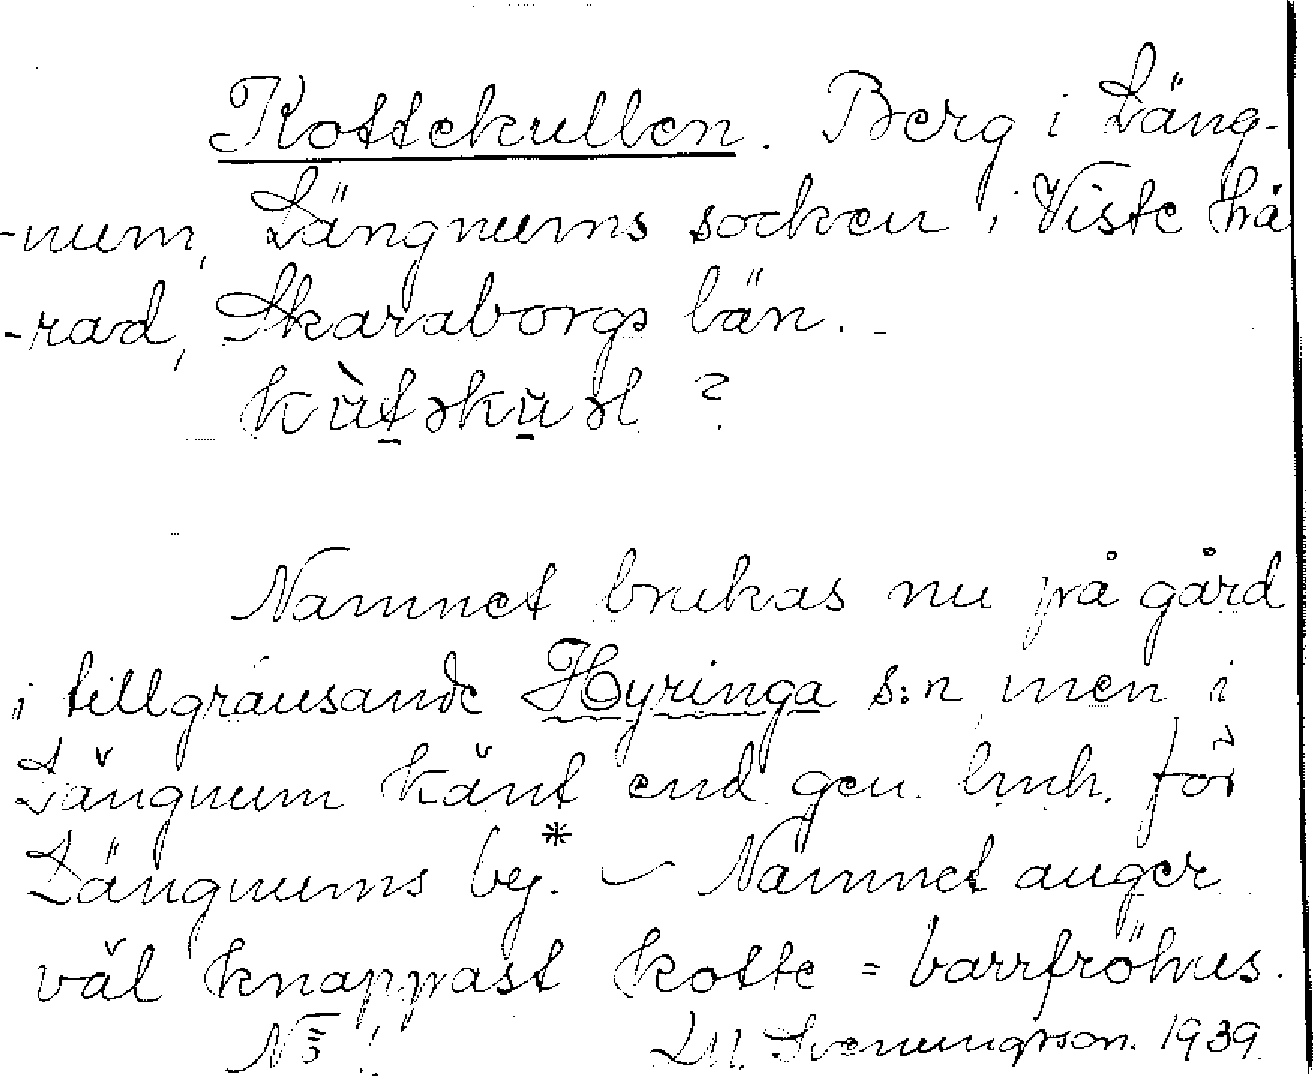 Kottekullen. Berg i Läng-
-num, Längnums socken, Viste hä
-rad, Skaraborgs län. -
?
Namnet brukas nu på gård
i tillgränsande Hyringa s:n men i
Längnum känt end. gen. lmh. för
Längnums by.* – Namnet anger
väl knappast kotte = barrfröhus.
Svenungsson. 1939.